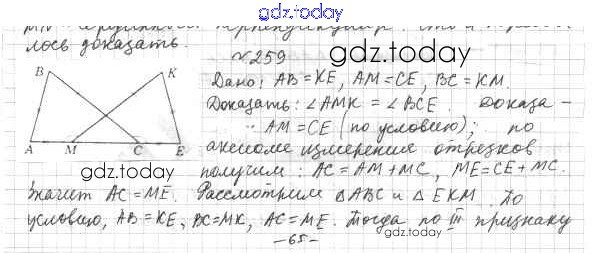 gdz.today
лось доказать.
№259
gdz.today
B K
Дано: AB=KE, AM=CE, BC=KM.
Доказать: ∠AMK = ∠BCE. Доказа-
AM=CE (по условию); по
A M C E
аксиоме измерения отрезков
gdz.today
получим: AC=AM+MC, ME=CE+MC.
Значит AC=ME. Рассмотрим △ABC и △EKM. По
условию, AB=KE, BC=MK, AC=ME. Тогда по III признаку
-65-
gdz.today